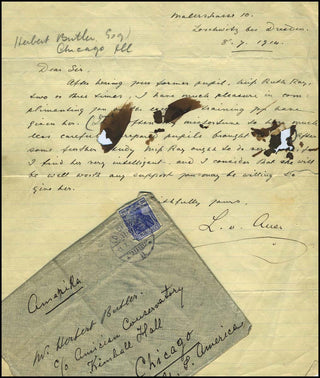 Malterstrasse 10.
Loschwitz bei Dresden
8. 7. 1914.
Herbert Butler, Esq
Chicago Ill
Dear Sir,
After hearing your former pupil, Miss Ruth Ray,
two or three times, I have much pleasure in com-
plimenting you on training you have
given her misfortune to much
less carefully pupils brought
some further study Miss Ray ought to do
I find her very intelligent, and I consider that she will
be well worth any support you may be willing to
give her.
faithfully yours,
L. v. Auer
Amerika
Mr. Herbert Butler.
c/o American Conservatory
Kimball Hall
Chicago
U. S. America